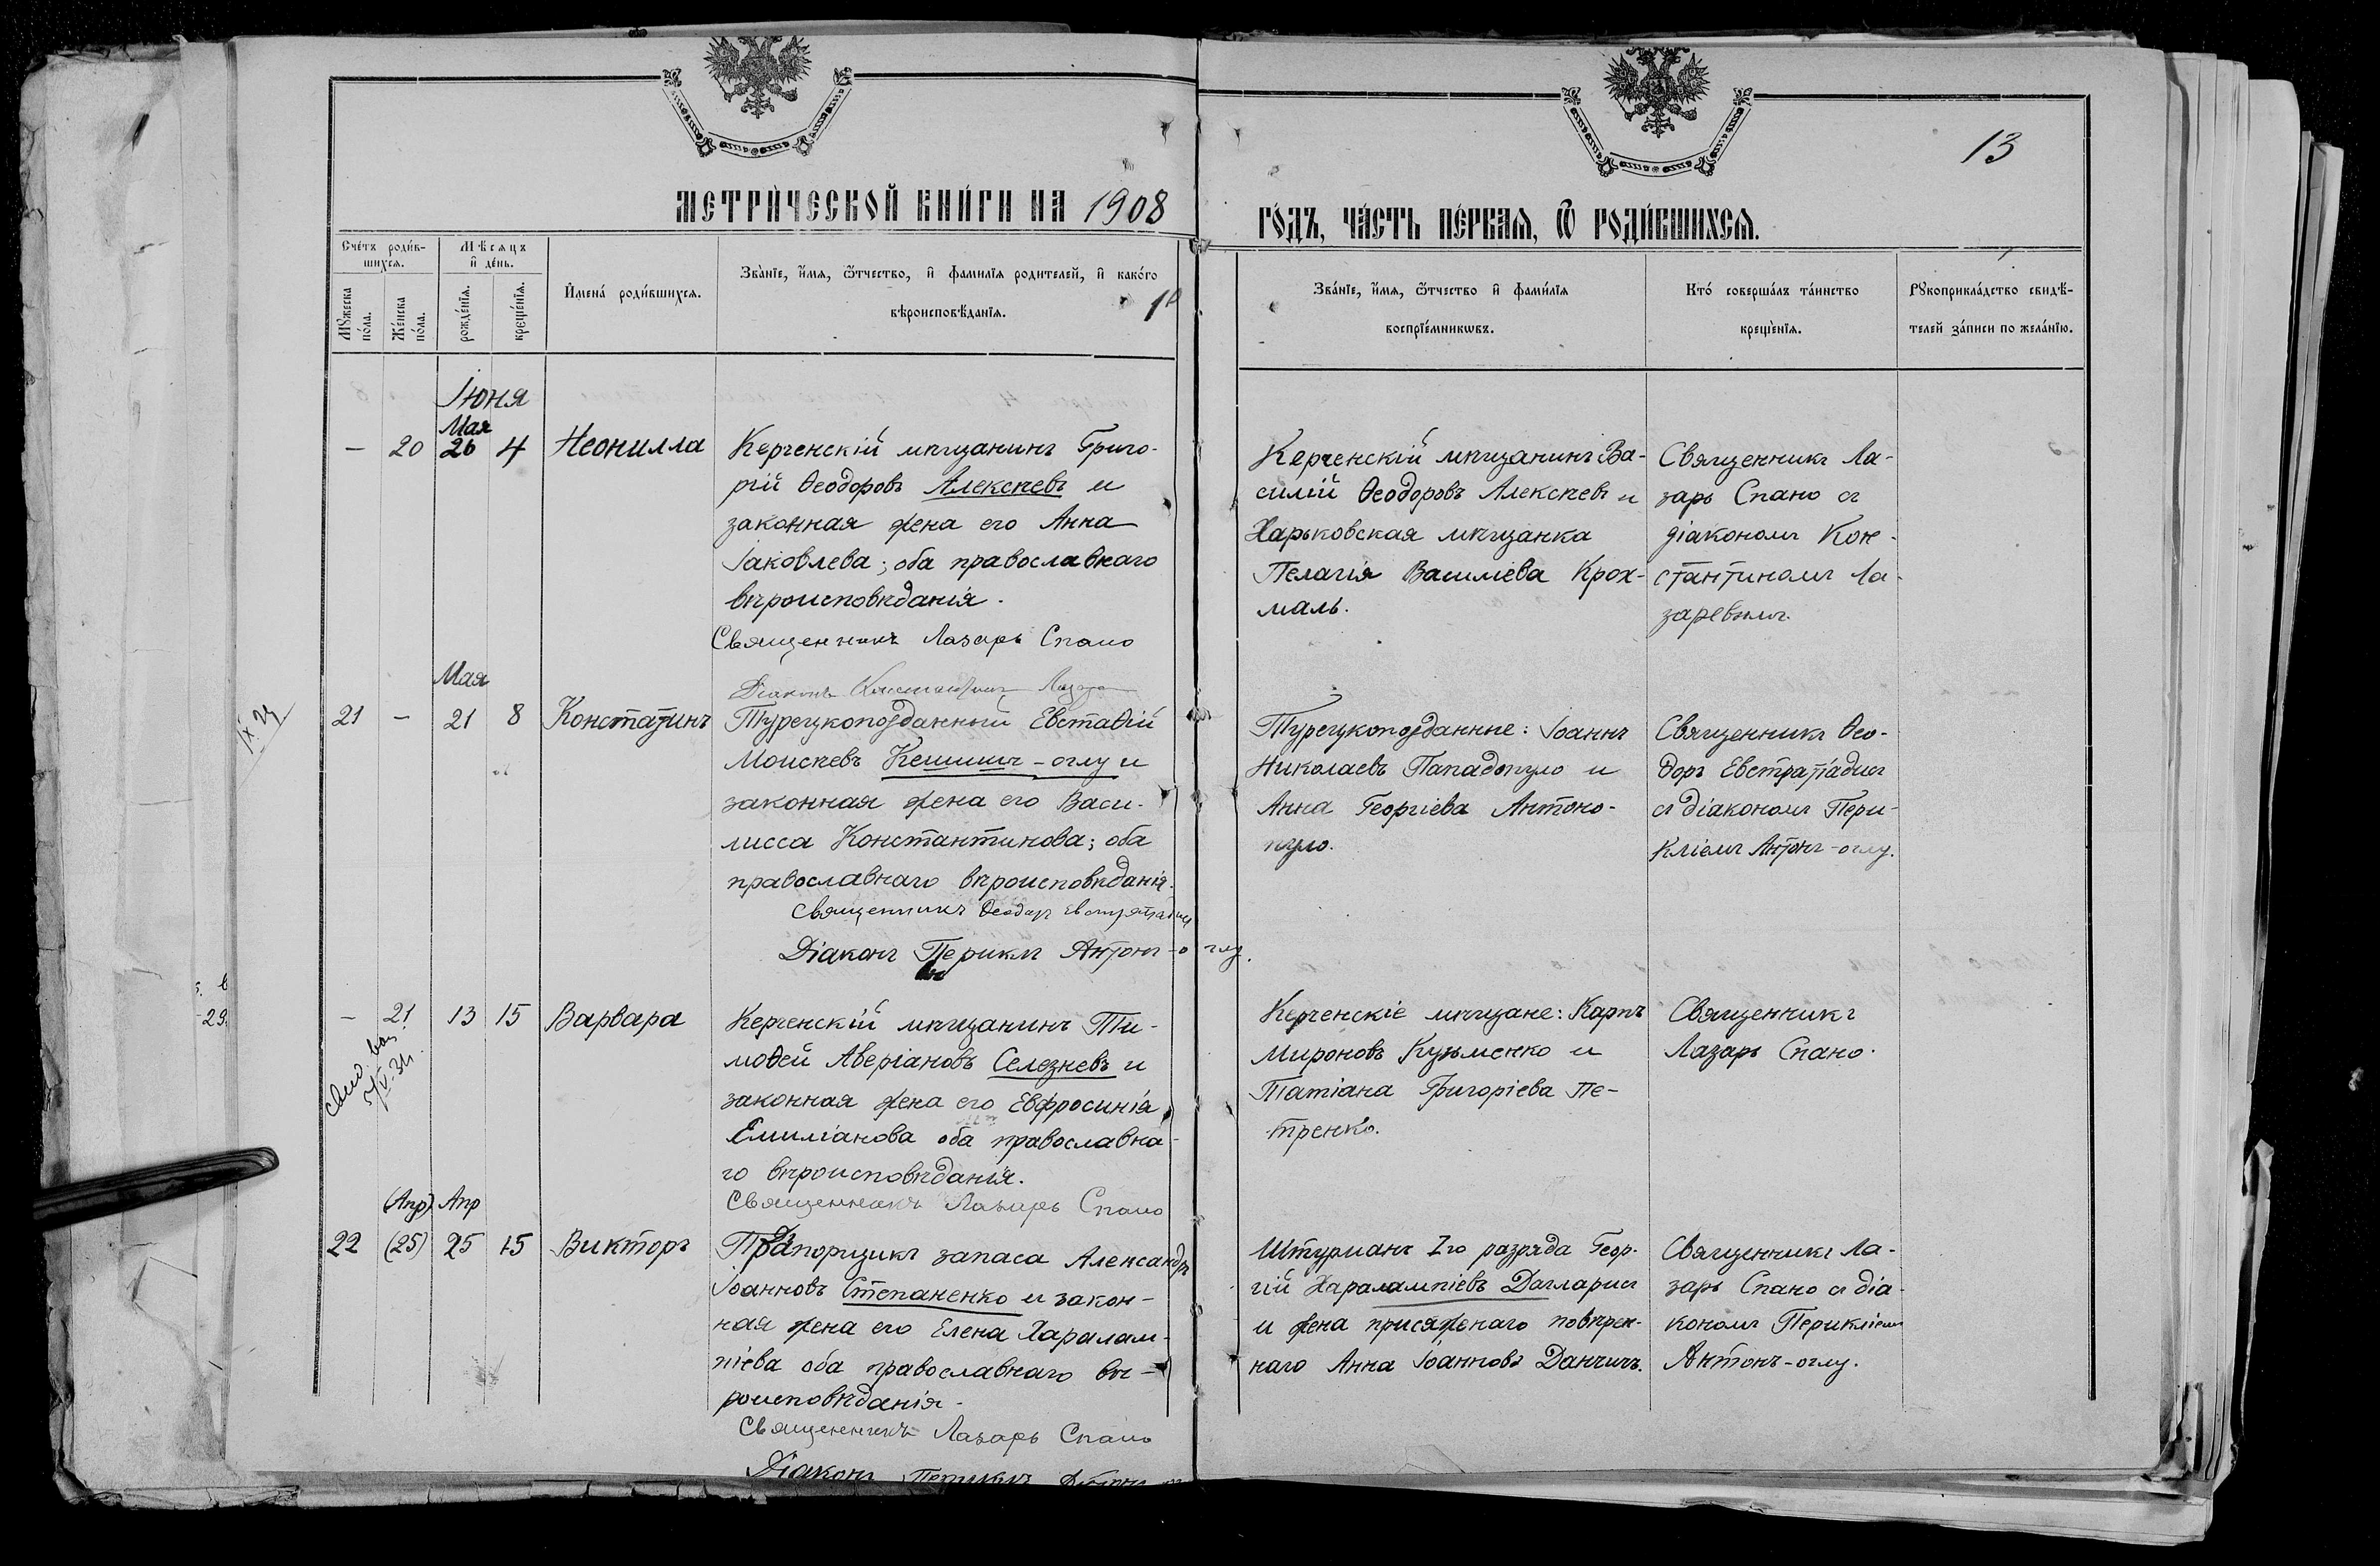 13
МЕТРИ́ЧЕСКОЙ КНИ́ГИ НА 1908
ГО́ДЪ, ЧА́СТЬ ПЕ́РВАЯ, Ѿ РОДИ́ВШИХСЯ.
Сче́тъ роди́в-
шихся.
Мѣсяцъ
и҆ де́нь.
Мꙋжеска
по́ла.
Же́нска
по́ла.
рожде́нїѧ.
креще́нїѧ.
И҆мена́ роди́вшихся.
Зва́нїе, и҆́мѧ, ѻ҆́тчество, и҆ фами́лїѧ роди́телей, и҆ како́го
вѣроисповѣ́данїѧ.
Зва́нїе, и҆́мѧ, ѻ҆́тчество и҆ фами́лїѧ
воспрїе́мникѡвъ.
Кто́ соверша́лъ та́инство
креще́нїѧ.
Рꙋкоприкла́дство свидѣ́-
телей за́писи по жела́нїю.
Іюня
Мая
— 20 26 4 Неонилла
Керченскій мѣщанинъ Григо-
рій Ѳеодоровъ Алексѣевъ и
законная жена его Анна
Іаковлева; оба православнаго
вѣроисповѣданія.
Священникъ Лазарь Спано
Діаконъ Константинъ
Керченскій мѣщанинъ Ва-
силій Ѳеодоровъ Алексѣевъ и
Харьковская мѣщанка
Пелагія Василіева Крох-
маль.
Священникъ Ла-
зарь Спано съ
діакономъ Кон-
стантиномъ Ла-
заревымъ.
Мая
21 — 21 8 Констатинъ
Турецкоподданный Евстаѳій
Моисѣевъ Кешишъ-оглу и
законная жена его Васи-
лисса Константинова; оба
православнаго вѣроисповѣданія.
Священникъ Ѳеодоръ Евстратіадисъ
Діаконъ Периклъ Антонъ-оглу.
Турецкоподданные: Іоаннъ
Николаевъ Пападопуло и
Анна Георгіева Антоно-
пуло.
Священникъ Ѳео-
доръ Евстратіадисъ
съ діакономъ Пери-
кліемъ Антонъ-оглу.
29
— 21 13 15 Варвара
Керченскій мѣщанинъ Ти-
моѳей Аверіановъ Селезневъ и
законная жена его Евфросинія
Емиліанова оба православна-
го вѣроисповѣданія.
Священникъ Лазарь Спано
Керченскіе мѣщане: Карпъ
Мироновъ Кузьменко и
Татіана Григоріева Пе-
тренко.
Священникъ
Лазарь Спано.
(Апр) Апр
22 (25) 25 15 Викторъ
Прапорщикъ запаса Александръ
Іоанновъ Степаненко и закон-
ная жена его Елена Харалам-
піева оба православнаго вѣ-
роисповѣданія.
Священникъ Лазарь Спано
Діаконъ Периклъ Антонъ
Штурманъ 1го разряда Геор-
гій Харалампіевъ Дагларисъ
и жена присяжнаго повѣрен-
наго Анна Іоаннова Данчичъ.
Священникъ Ла-
зарь Спано съ діа-
кономъ Перикліемъ
Антонъ-оглу.